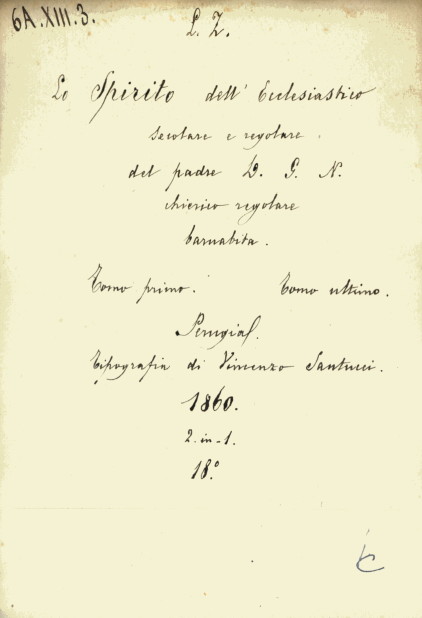 6A.XIII.3.
L. Z.
Lo Spirito dell' Ecclesiastico
secolare e regolare
del padre D. G. N.
chierico regolare
barnabita.
Tomo primo. Tomo ultimo.
Perugia.
Tipografia di Vincenzo Santucci.
1860.
2. in - 1.
18°.